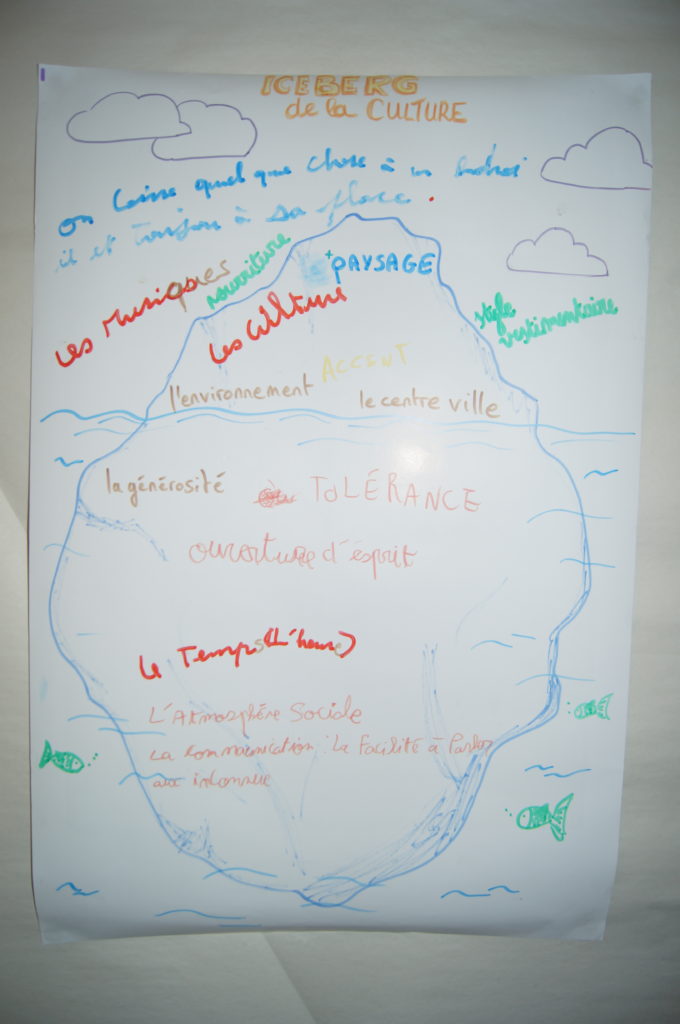 ICEBERG
de la CULTURE
on laisse quelque chose à un endroi
il et toujou à sa place.
Les Musiques
nourriture
+ PAYSAGE
Les Cultture
style
vestimentaire
ACCENT
l'environnement
le centre ville
la générosité
TOLÉRANCE
ouverture d'ésprit
Le Temps (L'heure)
L'Atmosphère Sociale
La communication : La Facilité à Parler
aux inconnue